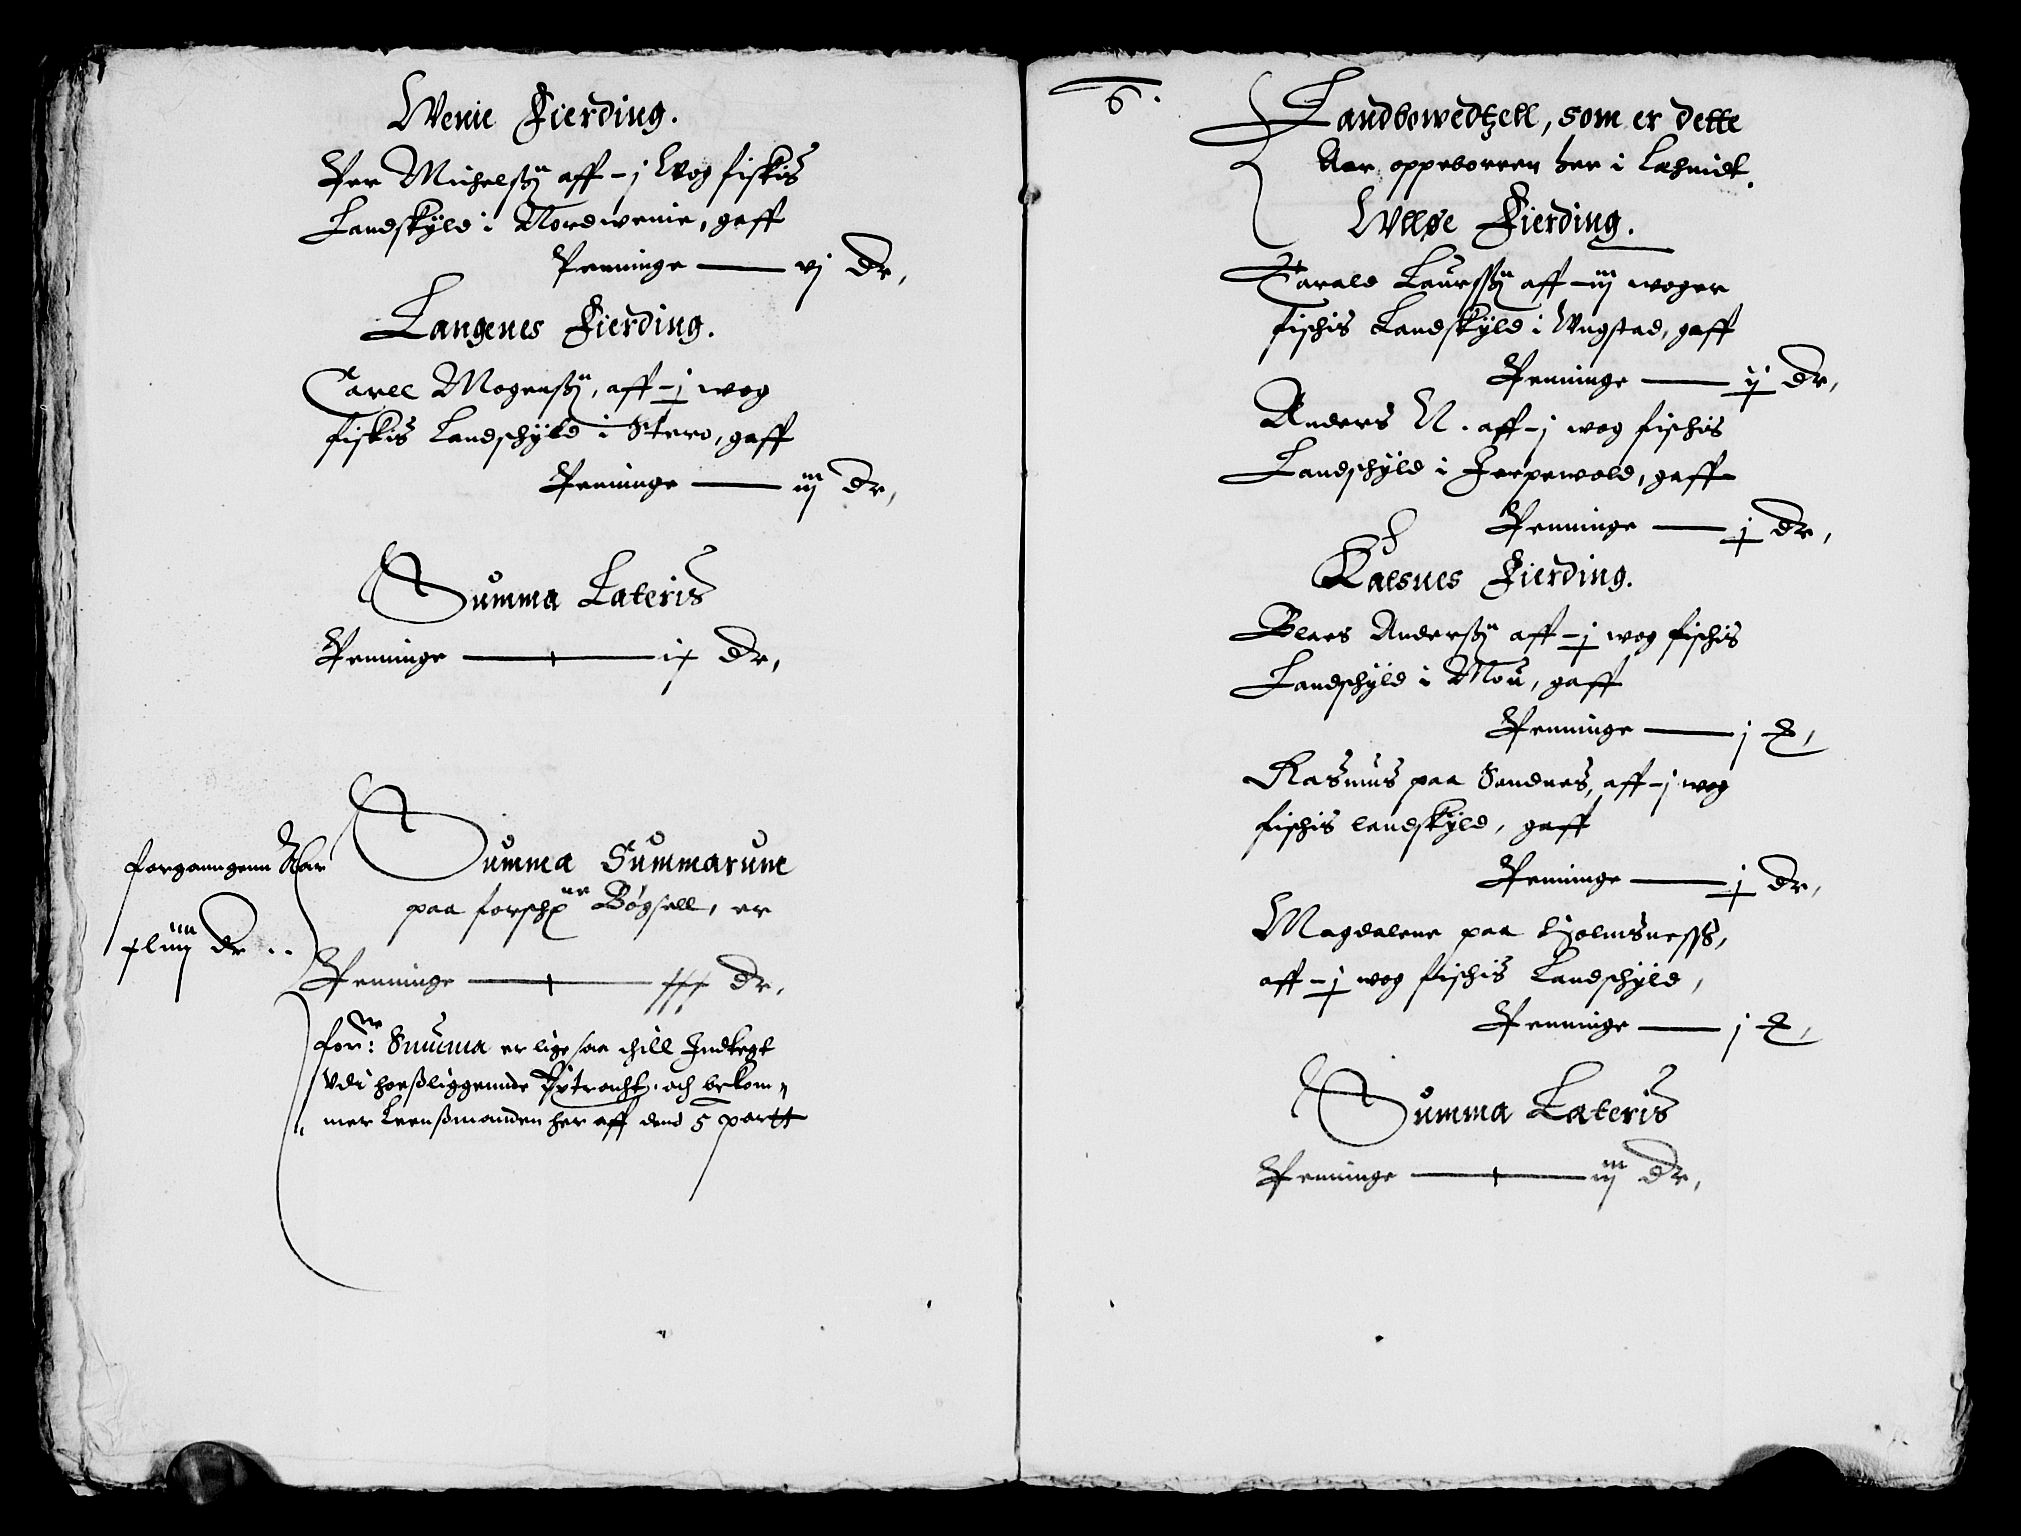 Wenie Fierding.
Per Michelsßn aff - j Wog fiskis
Landskÿld i Nordwenie, gaff
Penninge — vj dr,
Langenes Fierding.
Carll Mogensßn, aff - j wog
fiskis Landschÿld i Stero, gaff
Penninge — iij dr,
Summa Lateris
Penninge — ix dr,
forganngenn Aar
xliiij dr ..
Summa Summarum
paa forschr ne Bøgsell, er
Penninge — xxx dr,
for ne: Summa er lige saa till Indtegt
vdi hoesliggennde Extracht. och bekom„
„ mer Leenßmanden her aff dend 5 partt
6.
Landbowedtzell, som er dette
Aar oppeborren her i Læhnidt.
Ulløe Fierding.
Harald Laurssßn aff - iij woger
fischis Landskÿld i Ungstad, gaff
Penninge — ij dr,
Anders N. aff - j wog fischis
Landschÿld i Jerpewold, gaff
Penninge — j dr,
Kalsnes Fierding.
Blaes Andersßn aff - j wog fischis
Landschÿld i Mou, gaff
Penninge — j ₰,
Rasmus paa Sandnes, aff - j wog
fischis landskÿld, gaff
Penninge — j dr,
Magdalene paa Holmsness,
aff - j wog fischis Landschÿld,
Penninge — j ₰,
Summa Lateris
Penninge — iiij dr,